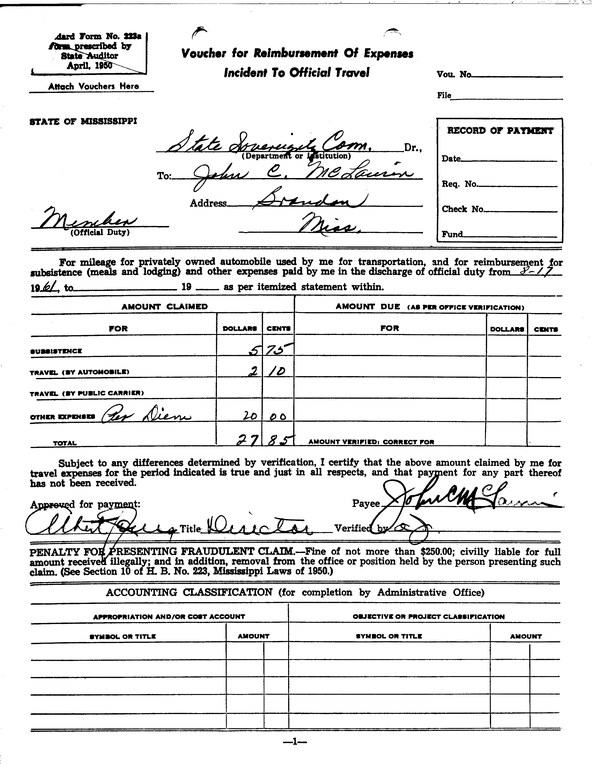 dard Form No. 223a
form prescribed by
State Auditor
April, 1950
Attach Vouchers Here
Voucher for Reimbursement Of Expenses
Incident To Official Travel
Vou. No.
File
STATE OF MISSISSIPPI
State Sovereignty Comm. Dr.,
(Department or Institution)
To: John C. McLaurin
Address Brandon
Miss.
Member
(Official Duty)
RECORD OF PAYMENT
Date
Req. No.
Check No.
Fund
For mileage for privately owned automobile used by me for transportation, and for reimbursement for
subsistence (meals and lodging) and other expenses paid by me in the discharge of official duty from 8-17
1961, to 19 as per itemized statement within.
AMOUNT CLAIMED AMOUNT DUE (AS PER OFFICE VERIFICATION)
FOR DOLLARS CENTS FOR DOLLARS CENTS
SUBSISTENCE 5 75
TRAVEL (BY AUTOMOBILE) 2 10
TRAVEL (BY PUBLIC CARRIER)
OTHER EXPENSES Per Diem 20 00
TOTAL 27 85 AMOUNT VERIFIED: CORRECT FOR
Subject to any differences determined by verification, I certify that the above amount claimed by me for
travel expenses for the period indicated is true and just in all respects, and that payment for any part thereof
has not been received.
Approved for payment: Payee John C McLaurin
Albert Jones Title Director Verified by
PENALTY FOR PRESENTING FRAUDULENT CLAIM.—Fine of not more than $250.00; civilly liable for full
amount received illegally; and in addition, removal from the office or position held by the person presenting such
claim. (See Section 10 of H. B. No. 223, Mississippi Laws of 1950.)
ACCOUNTING CLASSIFICATION (for completion by Administrative Office)
APPROPRIATION AND/OR COST ACCOUNT OBJECTIVE OR PROJECT CLASSIFICATION
SYMBOL OR TITLE AMOUNT SYMBOL OR TITLE AMOUNT
—1—